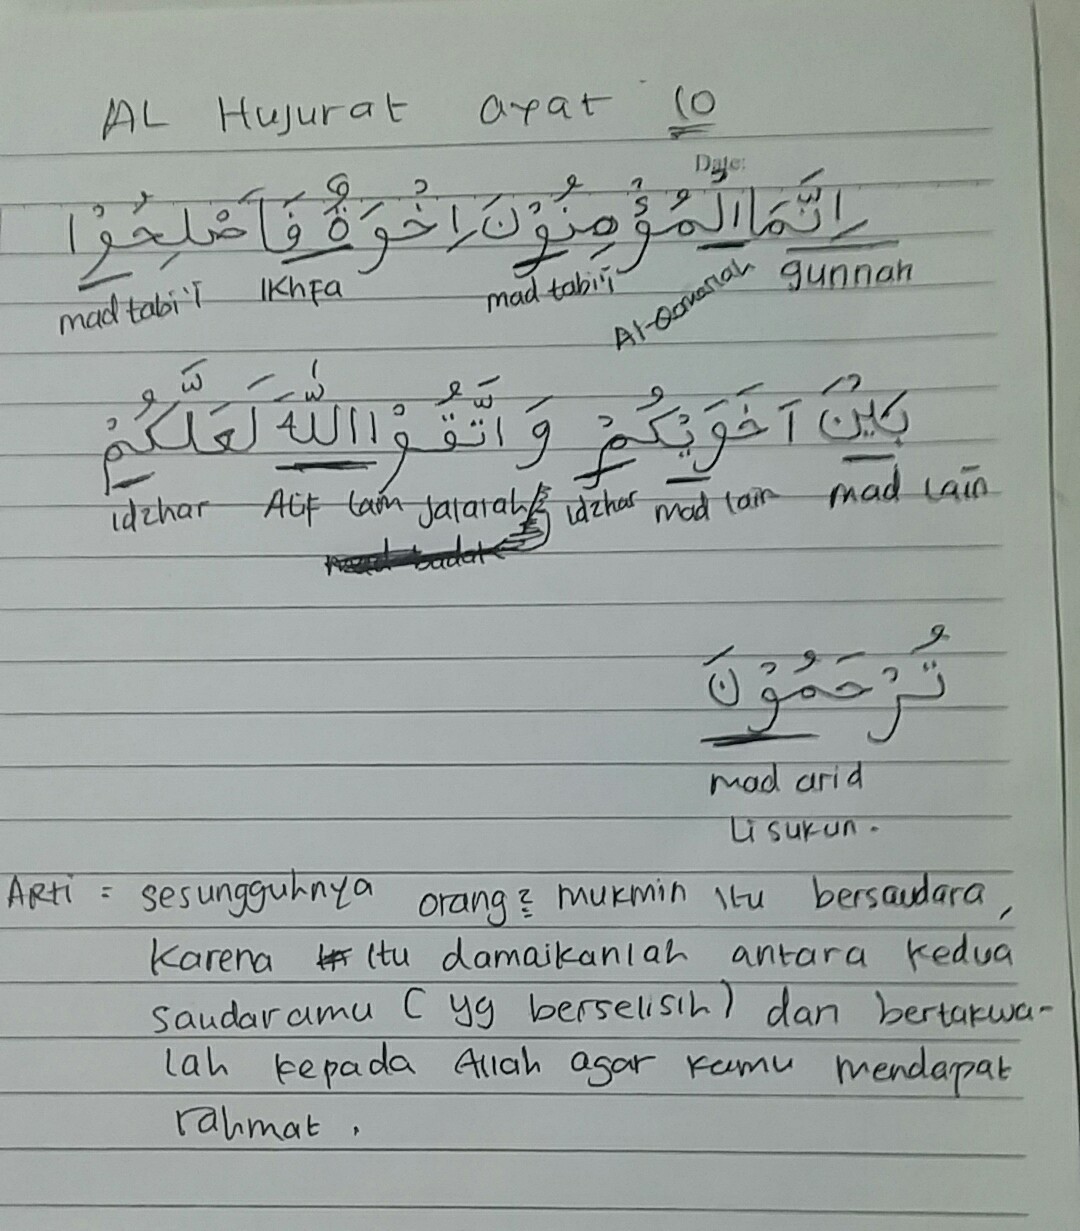 AL Hujurat ayat 10
Date:
اِنَّمَا الْمُؤْمِنُوْنَ اِخْوَةٌ فَاَصْلِحُوْا
mad tabi'i Ikhfa mad tabi'i Al-Qomariah gunnah
بَيْنَ اَخَوَيْكُمْ وَاتَّقُوْا اللّٰهَ لَعَلَّكُمْ
idzhar Alif lam jalalah idzhar mad lain mad lain
تُرْحَمُوْنَ
mad arid
Li sukun.
Arti = sesungguhnya orang2 mukmin itu bersaudara,
Karena itu damaikanlah antara kedua
saudaramu (yg berselisih) dan bertakwa-
lah kepada Allah agar kamu mendapat
rahmat.